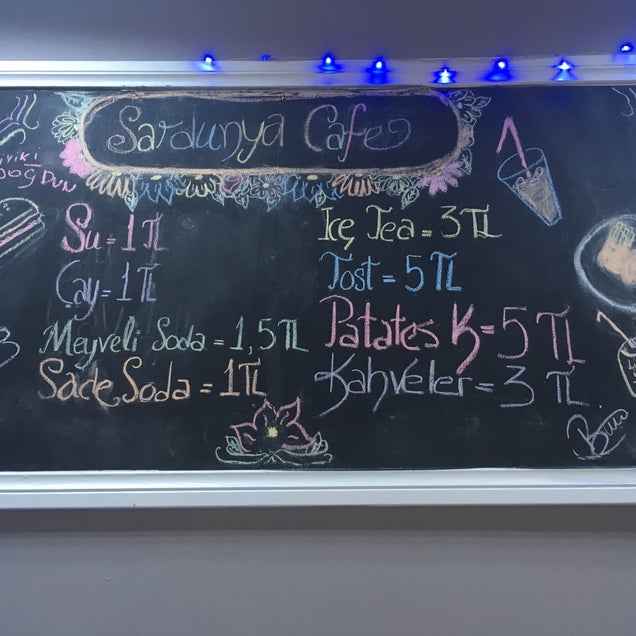 Sardunya Cafe
iyiki
DOĞDUN
Su = 1 TL
Çay = 1 TL
Meyveli Soda = 1,5 TL
Sade Soda = 1 TL
Ice Tea = 3 TL
Tost = 5 TL
Patates K = 5 TL
Kahveler = 3 TL.